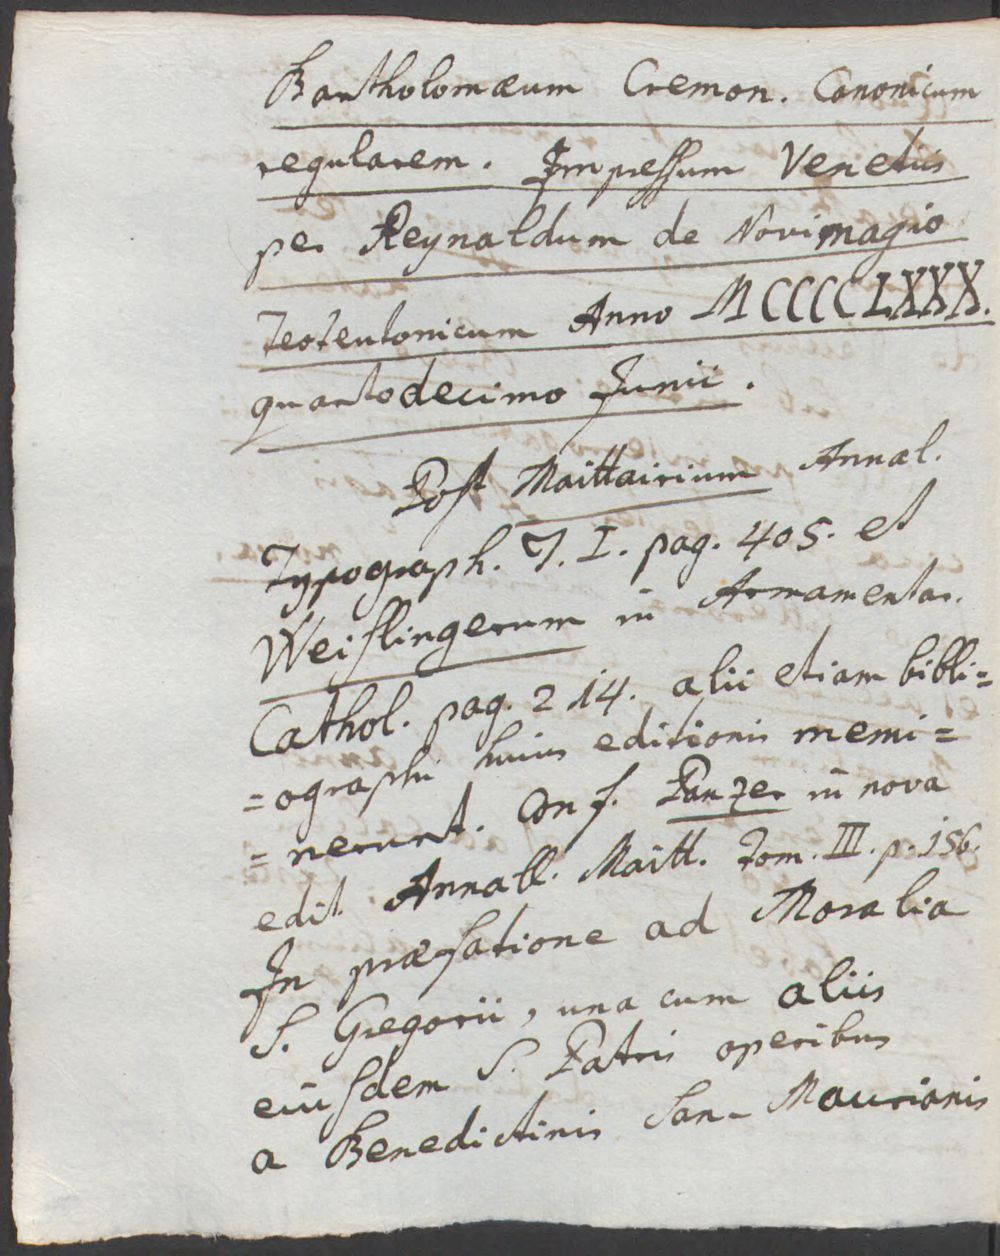 Bartholomæum Cremon. Canonicum
regularem. Impressum Venetiis
per Reynaldum de Novimagio
Teoteutonicum Anno MCCCCLXXX.
quartodecimo Junii.
Post Maittairium Annal.
Typograph. T. I. pag. 405. et
Weislingerum in Armamentar.
Cathol. pag. 214. alii etiam bibli=
=ographi huius editionis memi=
=nerunt. Conf. Panzer in nova
edit Annall. Maitt. Tom. III. p. 156.
In præfatione ad Moralia
S. Gregorii, una cum aliis
eiusdem S. Patris operibus
a Benedictinis San-Maurianis